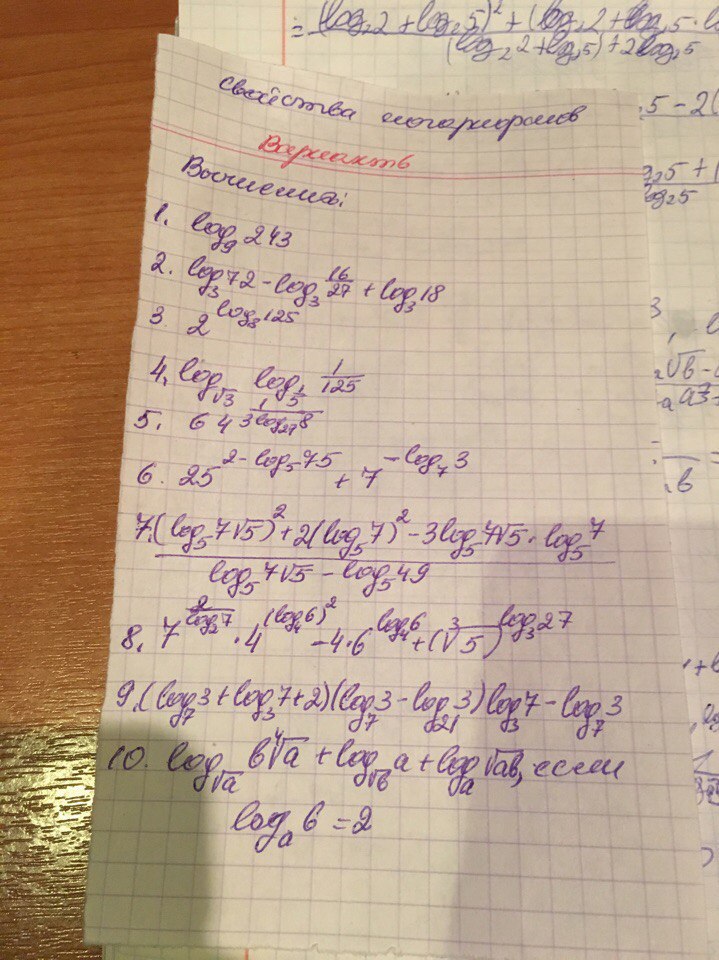 = (log₂2 + log₂5)² + (log₂2 + log₂5 ·
(log₂2 + log₂5) + 2log₂5
5 - 2(
Свойства логарифмов
Вариант 6
Вычислить:
1. log₉ 243
2. log₃ 72 - log₃ 16/27 + log₃ 18
3 2^(log₈ 125)
4. log_√3 log_(1/5) 1/125
5. 64^(1/(3log₂₇ 8))
6. 25^(2 - log₅ 75) + 7^(-log₇ 3)
7. ((log₅ 7√5)² + 2(log₅ 7)² - 3log₅ 7√5 · log₅ 7) / (log₅ 7√5 - log₅ 49)
8. 7^(2/log₂ 7) · 4^((log₄ 6)²) - 4·6^(log₄ 6) + (∛5)^(log₃ 27)
9. (log₇ 3 + log₃ 7 + 2)(log₇ 3 - log₂₁ 3) log₃ 7 - log₇ 3
10. log_√a b∜a + log_√b a + log_a √ab, если
log_a b = 2